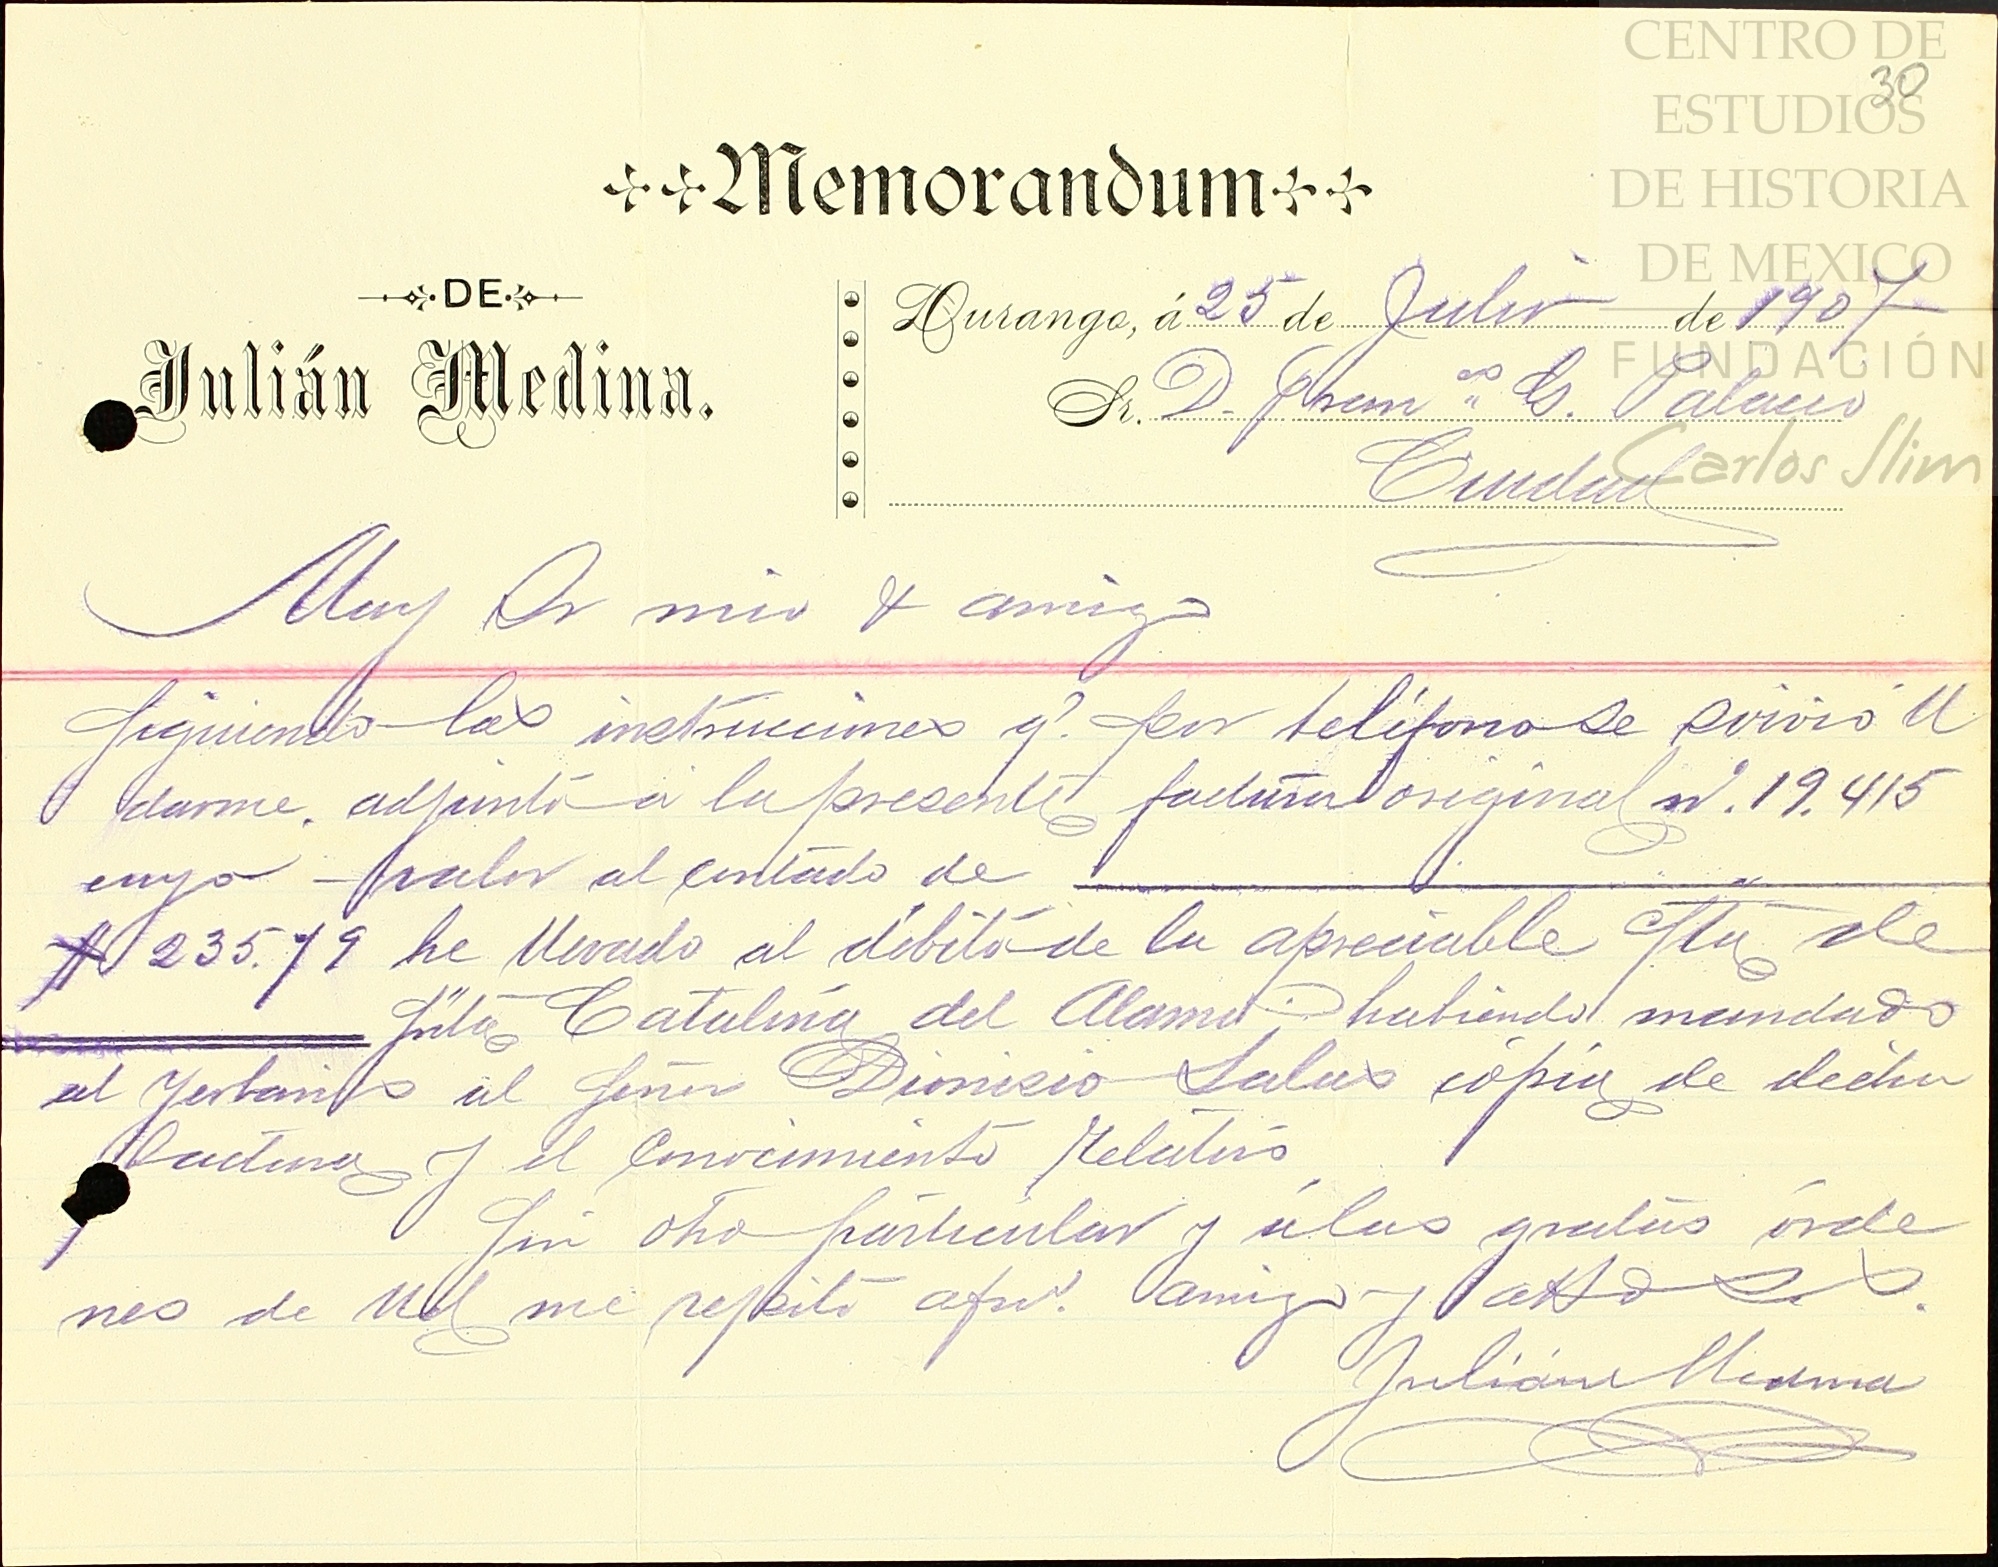 CENTRO DE
ESTUDIOS
DE HISTORIA
DE MEXICO
FUNDACIÓN
Carlos Slim
30
Memorandum
DE
Julián Medina.
Durango, á 25 de Julio de 1907
Sr. D. Fran.co G. Palacio
Ciudad
Muy Sr mio y amigo
Siguiendo las instrucciones q.e por teléfono se sirvió U
darme, adjunto á la presente factura original n.o 19.415
cuyo valor al contado de
$ 235.79 he llevado al débito de la apreciable Cta de
Sta Catalina del Alamo habiendo mandado
al Yerbanis al Señor Dionisio Salas copia de dicha
factura y el conocimiento relativo
Sin otro particular y á las gratas órde
nes de Ud me repito afmo. amigo y atto S.S.
Julián Medina